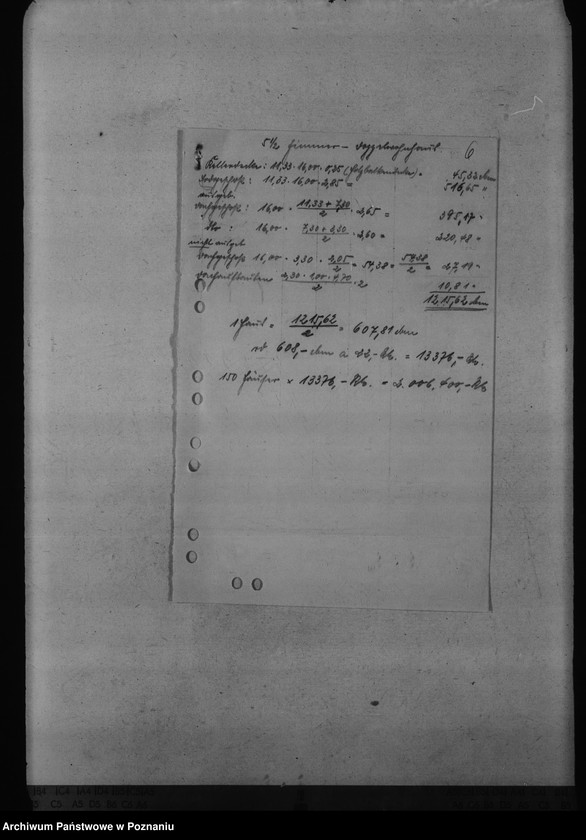 5½ Zimmer – Doppelwohnhaus 6
Kellerdecke: 11,33 · 16,00 · 0,25 (Holzbalkendecke) = 45,32 cbm
Erdgeschoß: 11,33 · 16,00 · 2,85 = 516,65 "
ausgeb.
Dachgeschoß: 16,00 · (11,33 + 7,30)/2 · 2,65 = 395,17 "
16,00 · (7,30 + 3,30)/2 · 2,60 = 220,48 "
nicht ausgeb.
Dachgeschoß 16,00 · 3,30 · 2,05/2 = 54,38 = 54,38/2 = 27,19 "
10,81 "
1215,62 cbm
1 Haus = 1215,62/2 = 607,81 cbm
rd 608,– cbm a 22,– Rb. = 13376,– Rb.
150 Häuser x 13376,– Rb. = 2.006.400,– Rb
Archiwum Państwowe w Poznaniu